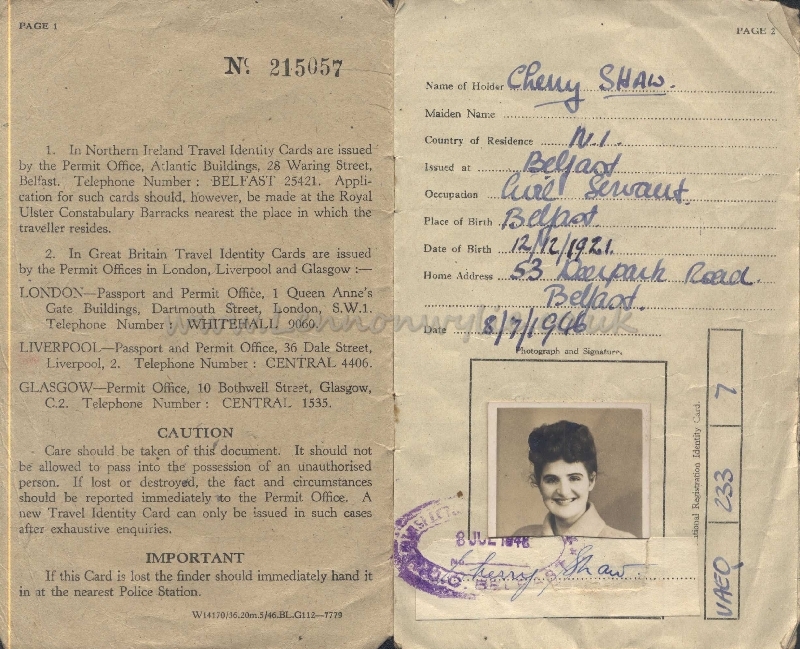 PAGE 1
Nº 215057
1. In Northern Ireland Travel Identity Cards are issued
by the Permit Office, Atlantic Buildings, 28 Waring Street,
Belfast. Telephone Number : BELFAST 25421. Appli-
cation for such cards should, however, be made at the Royal
Ulster Constabulary Barracks nearest the place in which the
traveller resides.
2. In Great Britain Travel Identity Cards are issued
by the Permit Offices in London, Liverpool and Glasgow :—
LONDON—Passport and Permit Office, 1 Queen Anne's
Gate Buildings, Dartmouth Street, London, S.W.1.
Telephone Number : WHITEHALL 9060.
LIVERPOOL—Passport and Permit Office, 36 Dale Street,
Liverpool, 2. Telephone Number : CENTRAL 4406.
GLASGOW—Permit Office, 10 Bothwell Street, Glasgow,
C.2. Telephone Number : CENTRAL 1535.
CAUTION
Care should be taken of this document. It should not
be allowed to pass into the possession of an unauthorised
person. If lost or destroyed, the fact and circumstances
should be reported immediately to the Permit Office. A
new Travel Identity Card can only be issued in such cases
after exhaustive enquiries.
IMPORTANT
If this Card is lost the finder should immediately hand it
in at the nearest Police Station.
W14170/36.20m.5/46.BL.G112—7779
PAGE 2
Name of Holder Cherry SHAW.
Maiden Name
Country of Residence N.I.
Issued at Belfast
Occupation Civil Servant.
Place of Birth Belfast
Date of Birth 12/12/1921.
Home Address 53 Deerpark Road.
Belfast.
Date 8/7/1946
Photograph and Signature.
8 JUL 1946
Cherry Shaw
tional Registration Identity Card.
UAEQ 233 7